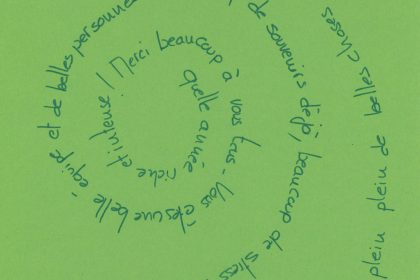 Quelle année riche et intense ! Merci beaucoup à vous tous - Vous êtes une belle équipe et de belles personnes
de souvenirs déjà, beaucoup de stress
plein plein de belles choses